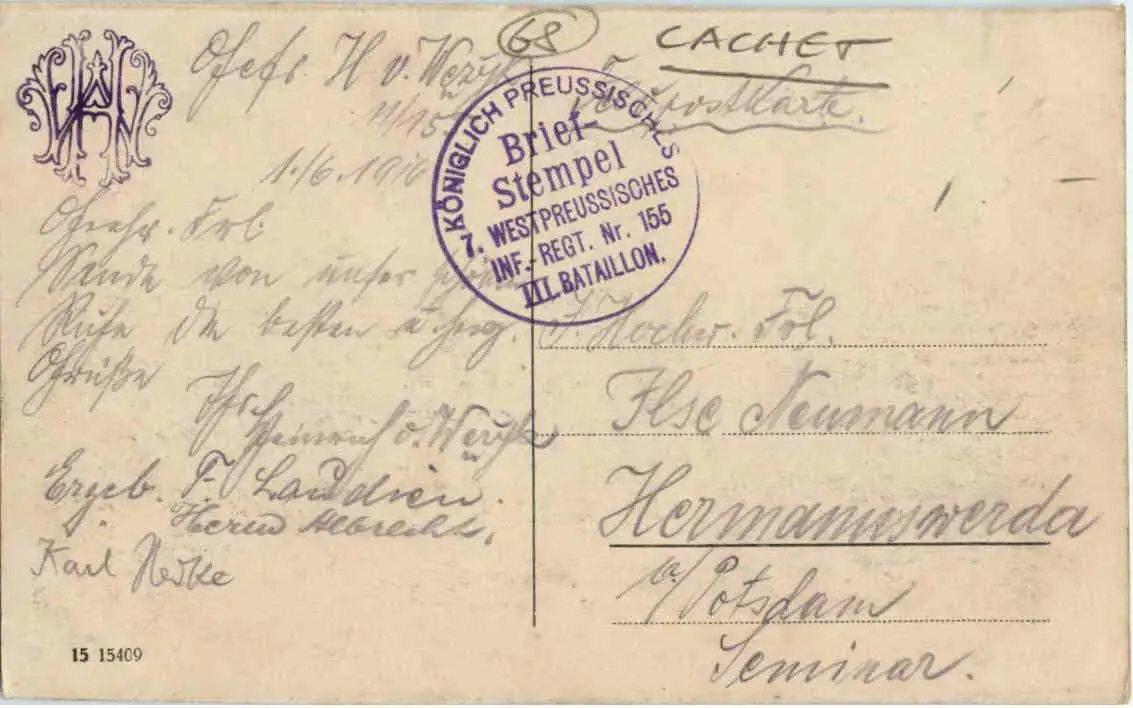 68
CACHET
Gefr. H. v.
11/155
Feldpostkarte.
1./6.1916
KÖNIGLICH PREUSSISCHES
Brief-
Stempel
7. WESTPREUSSISCHES
INF.-REGT. Nr. 155
III. BATAILLON.
Geehr. Frl.
Sende von unser schönen
Ruhe die besten u. herz.
Grüße
Ihr
Heinrich v.
Ergeb. F. Laudien.
Albrecht.
Karl
Frl.
Ilse Neumann
Hermannswerda
a/Potsdam
Seminar.
15 15409